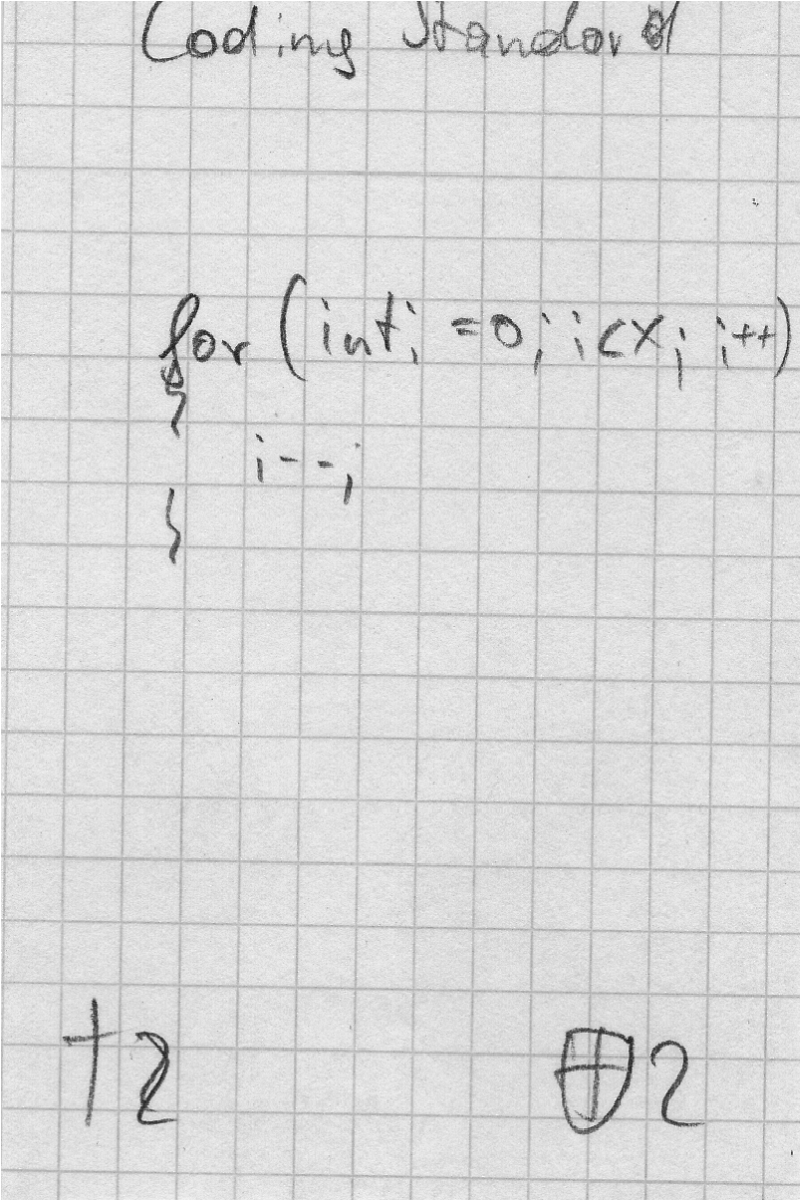 Coding Standard
for (int i =0; i<x; i++)
{
i--;
}
†2 2